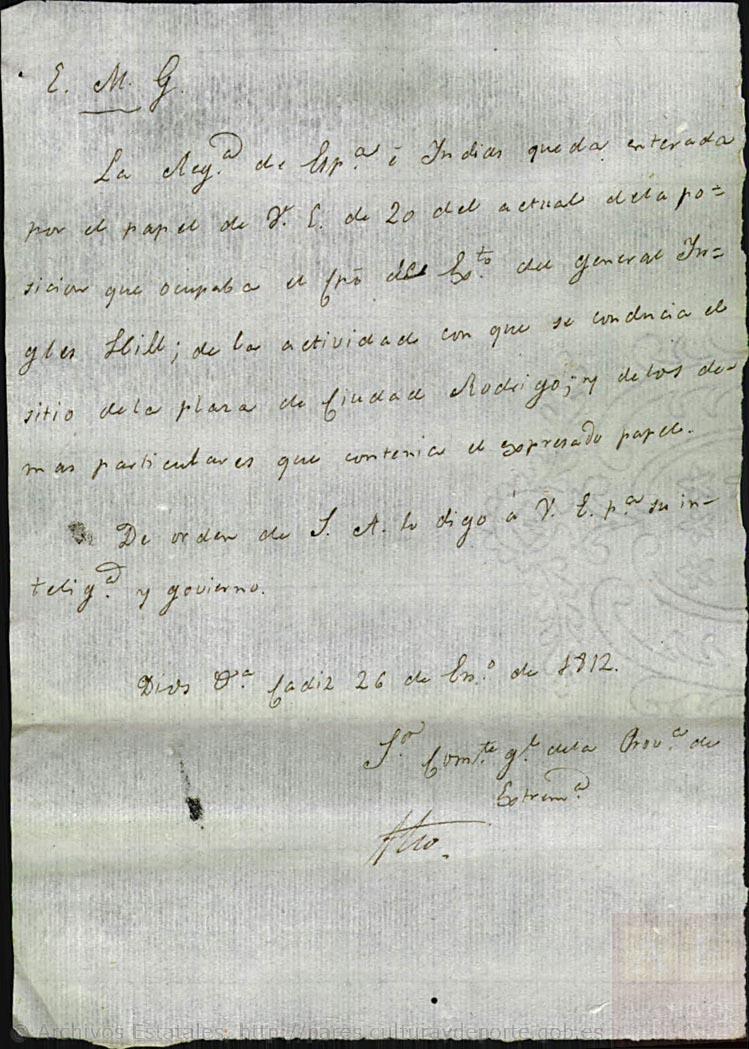 E. M. G.
La Reg.a de Esp.a é Indias queda enterada
por el papel de V. E. de 20 del actual dela po=
sicion que ocupaba el Cpõ del Ex.to del general In=
gles Hill; de la actividad con que se conducia el
sitio dela plaza de Ciudad Rodrigo; y delos de=
mas particulares que contenia el expresado papel.
De orden de S. A. lo digo á V. E. p.a su in=
telig.a y govierno.
Dios &.a Cadiz 26 de En.o de 1812.
S.or Com.te g.l dela Prov.a de
Extrem.a
fho.
© Archivos Estatales, http://pares.culturaydeporte.gob.es